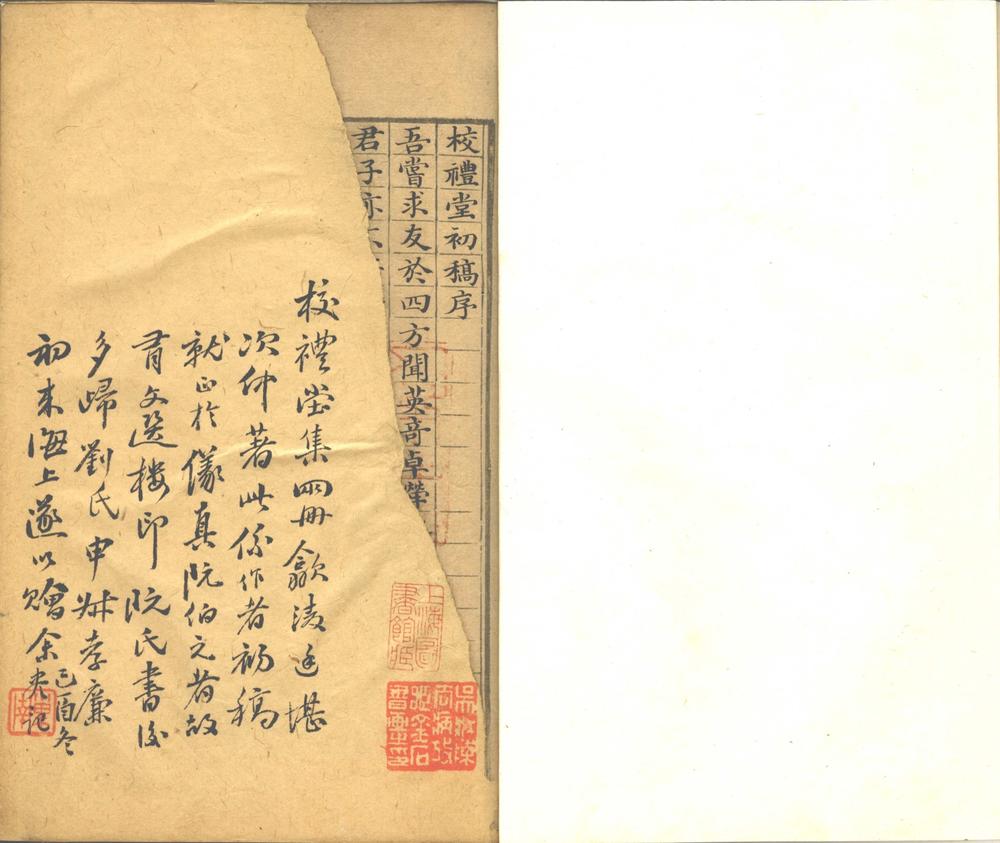 校禮堂初稿序
吾嘗求友於四方聞英竒卓犖
君子亦
校禮堂集四冊歙淩廷堪
次仲著此係作者初稿
就正於儀真阮伯元者故
有文選樓印阮氏書後
多歸劉氏申叔孝廉
初來海上遂以贈余
己酉冬
上海圖書館藏